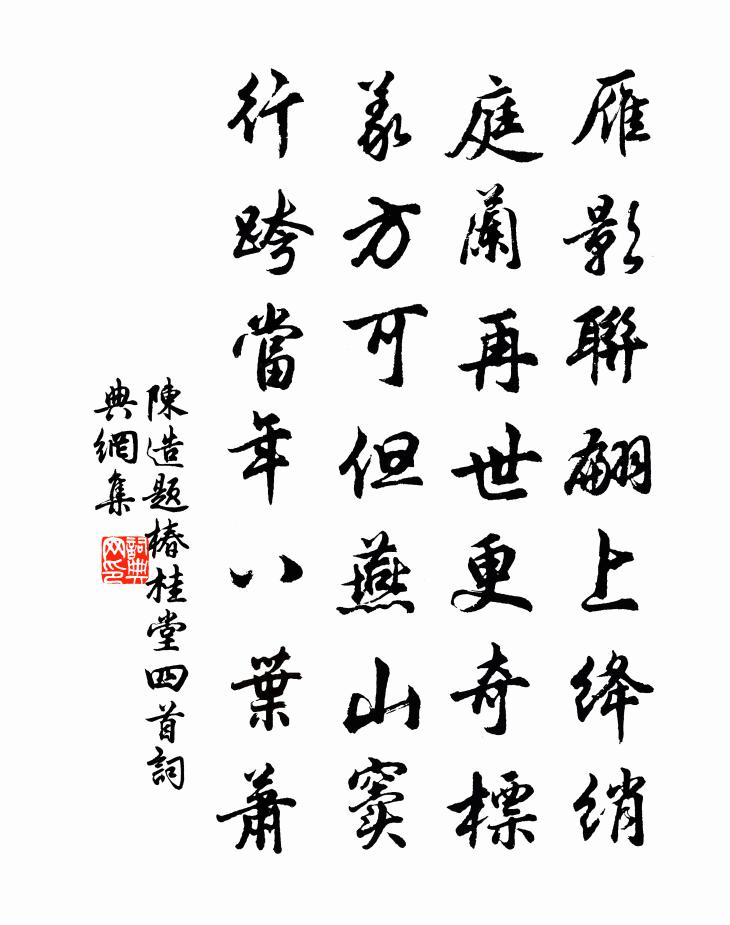 雁影聯翩上絳綃
庭蘭再世更奇標
義方可但燕山竇
行跨當年八葉蕭
陳造題椿桂堂四首詞
典網集
詞典网印